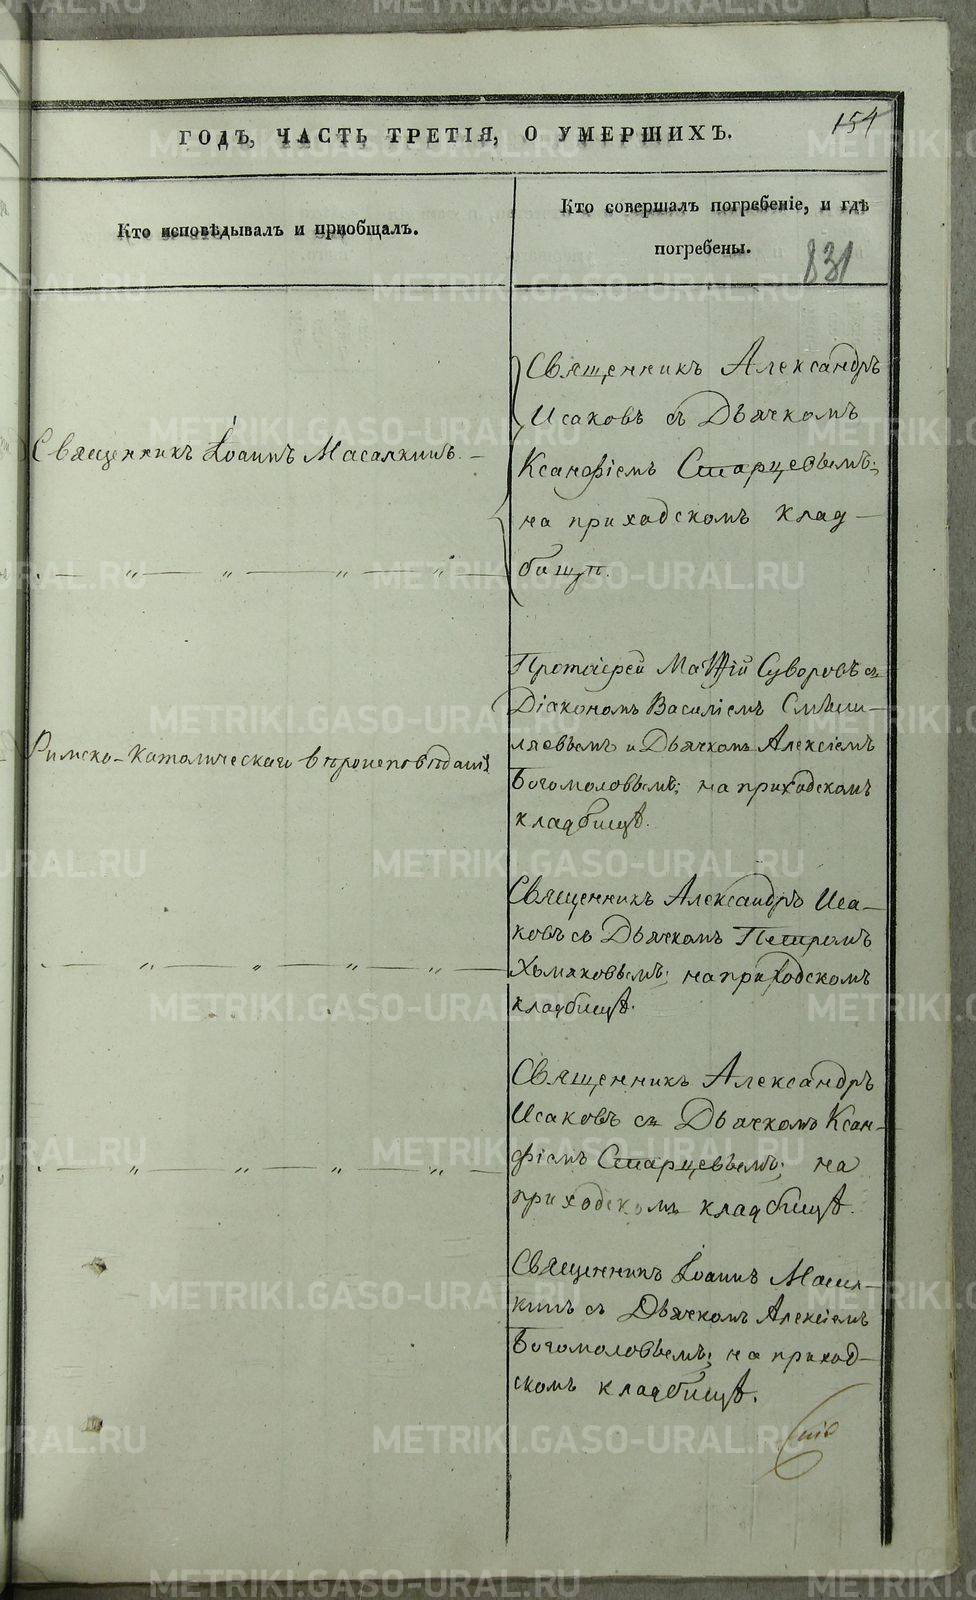 154
ГОДЪ, ЧАСТЬ ТРЕТІЯ, О УМЕРШИХЪ.
Кто исповѣдывалъ и пріобщалъ.
Кто совершалъ погребеніе, и гдѣ
погребены.
831
Священникъ Іоаннъ Масалкинъ. —
— „ — „ — „ — „ —
Священникъ Александръ
Исаковъ съ Дьячкомъ
Ксанфіемъ Старцевымъ;
на приходскомъ клад-
бищѣ.
Римско-Католическаго вѣроисповѣданія
Протоіерей Матѳій Суворовъ съ
Діакономъ Василіемъ Смыш-
ляевымъ и Дьячкомъ Алексіемъ
Богомоловымъ; на приходскомъ
кладбищѣ.
— „ — „ — „ — „ —
Священникъ Александръ Иса-
ковъ съ Дьячкомъ Петромъ
Хомяковымъ; на приходскомъ
кладбищѣ.
— „ — „ — „ — „ —
Священникъ Александръ
Исаковъ съ Дьячкомъ Ксан-
фіемъ Старцевымъ; на
приходскомъ кладбищѣ.
Священникъ Іоаннъ Масал-
кинъ съ Дьячкомъ Алексіемъ
Богомоловымъ; на приход-
скомъ кладбищѣ.
METRIKI.GASO-URAL.RU